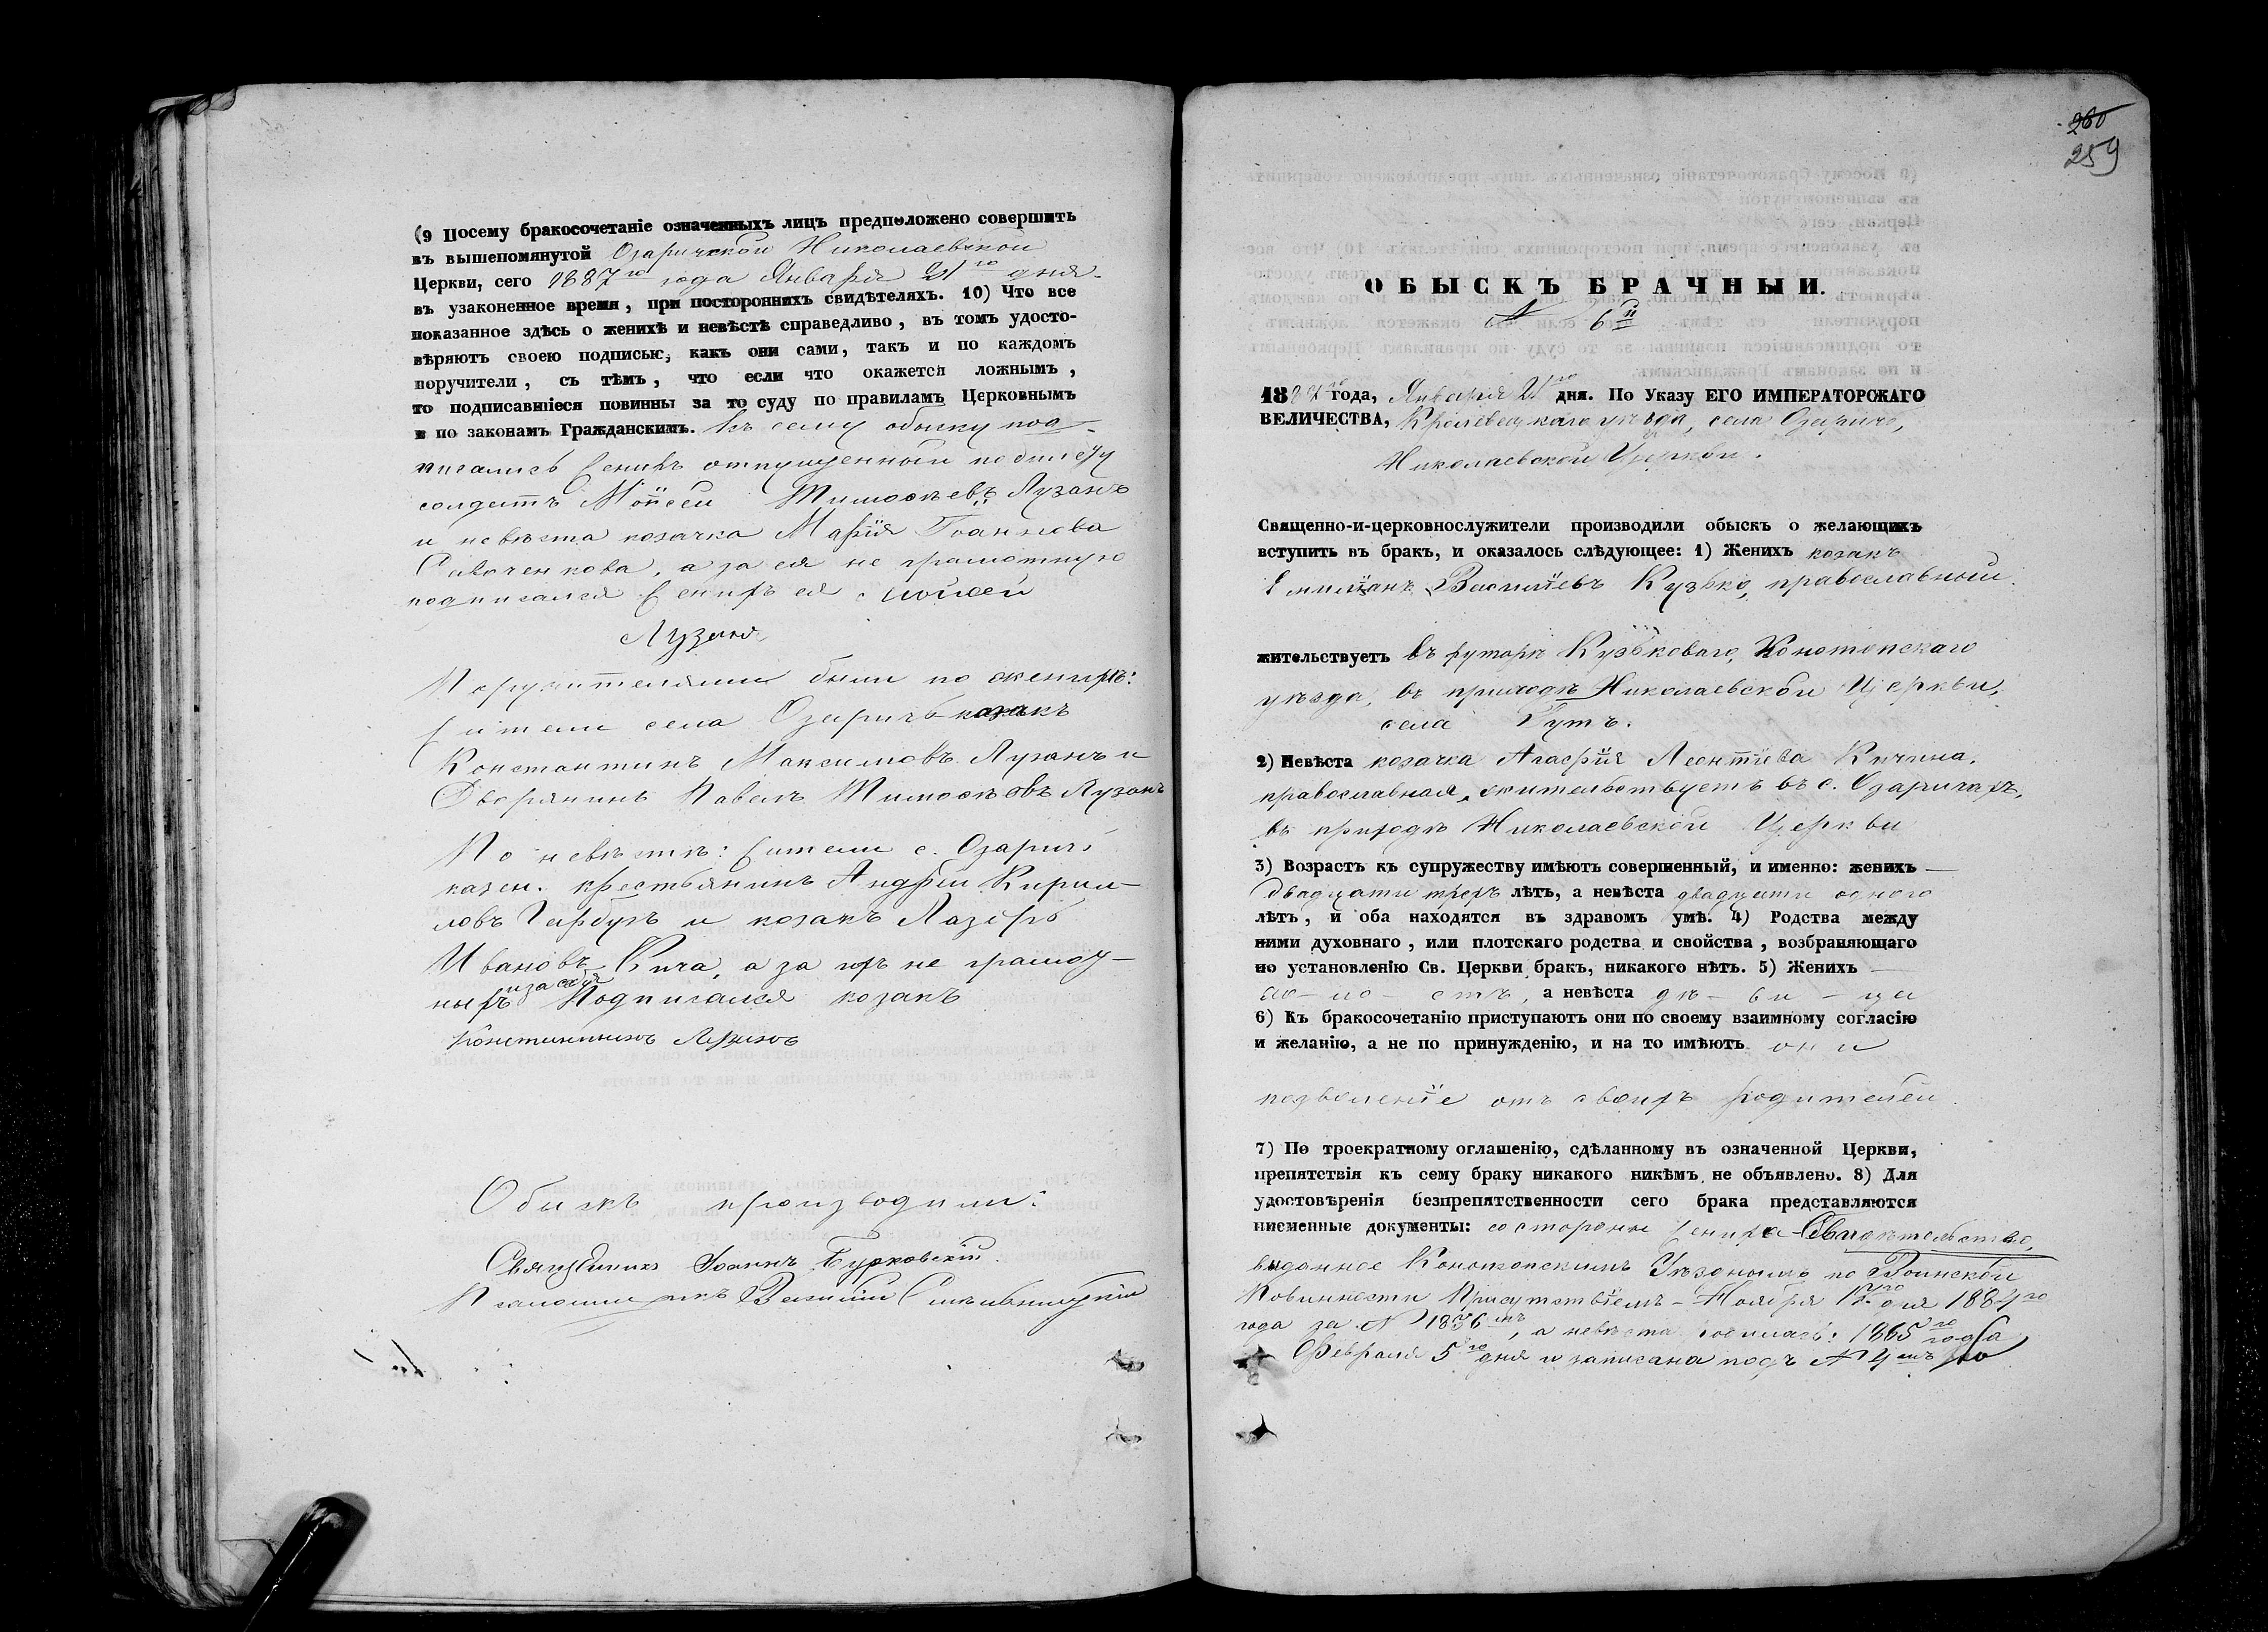 (9 Посему бракосочетаніе означенныхъ лицъ предположено совершить
въ вышепомянутой Озаричской Николаевской
Церкви, сего 1887го года Января 21го дня.
въ узаконенное время, при постороннихъ свидѣтеляхъ. 10) Что все
показанное здѣсь о женихѣ и невѣстѣ справедливо, въ томъ удосто-
вѣряютъ своею подписью, какъ они сами, такъ и по каждомъ
поручители, съ тѣмъ, что если что окажется ложнымъ,
то подписавшіеся повинны за то суду по правиламъ Церковнымъ
и по законамъ Гражданскимъ. Къ сему обыску под-
писались женихъ отпущенный по билету
солдатъ Моѵсей Тимоѳѣевъ Лузанъ
и невѣста козачка Марія Іоаннова
Савоченкова, а за ея не грамотную
подписался женихъ ея Моѵсей
Лузанъ
Поручителями были по женихѣ:
жители села Озаричъ козакъ
Константинъ Максимовъ Лузанъ и
Дворянинъ Павелъ Тимоѳѣевъ Лузанъ
По невѣстѣ: жители с. Озаричъ
казен. крестьянинъ Андрей Кирил-
ловъ Гарбузъ и козакъ Лазарь
Ивановъ Кича, а за ихъ не грамот-
ныхъ и за себя Подписался козакъ
Константинъ Лузанъ
Обыскъ производили:
Священникъ Іоаннъ Бурковскій
Псаломщикъ Василій
260
259
ОБЫСКЪ БРАЧНЫЙ.
№ 6й
1887го года, Января 21го дня. По Указу ЕГО ИМПЕРАТОРСКАГО
ВЕЛИЧЕСТВА, Кролевецкаго уѣзда, села Озаричъ,
Николаевской Церкви.
Священно-и-церковнослужители производили обыскъ о желающихъ
вступить въ бракъ, и оказалось слѣдующее: 1) Женихъ козакъ
Емиліанъ Васильевъ Кузько, православный.
жительствуетъ въ хуторѣ Кузьковаго, Конотопскаго
уѣзда, въ приходѣ Николаевской Церкви,
села Гутъ.
2) Невѣста козачка Агафія Леонтіева Кичина,
православная, жительствуетъ въ с. Озаричахъ,
въ приходѣ Николаевской Церкви
3) Возрастъ къ супружеству имѣютъ совершенный, и именно: женихъ —
двадцати трехъ лѣтъ, а невѣста двадцати одного
лѣтъ, и оба находятся въ здравомъ умѣ. 4) Родства между
ними духовнаго, или плотскаго родства и свойства, возбраняющаго
по установленію Св. Церкви бракъ, никакого нѣтъ. 5) Женихъ —
хо - ло - стъ, а невѣста дѣ - ви - ца
6) Къ бракосочетанію приступаютъ они по своему взаимному согласію
и желанію, а не по принужденію, и на то имѣютъ они
позволеніе отъ своихъ родителей.
7) По троекратному оглашенію, сдѣланному въ означенной Церкви,
препятствія къ сему браку никакого никѣмъ не объявлено. 8) Для
удостовѣренія безпрепятственности сего брака представляются
писменные документы: со стороны жениха Свидѣтельство,
выданное Конотопскимъ Уѣзднымъ по Воинской
Повинности Присутствіемъ - Ноября 12го дня 1884го
года за № 1836мъ, а невѣста родилась: 1865го года
Февраля 5го дня и записана подъ № 4мъ